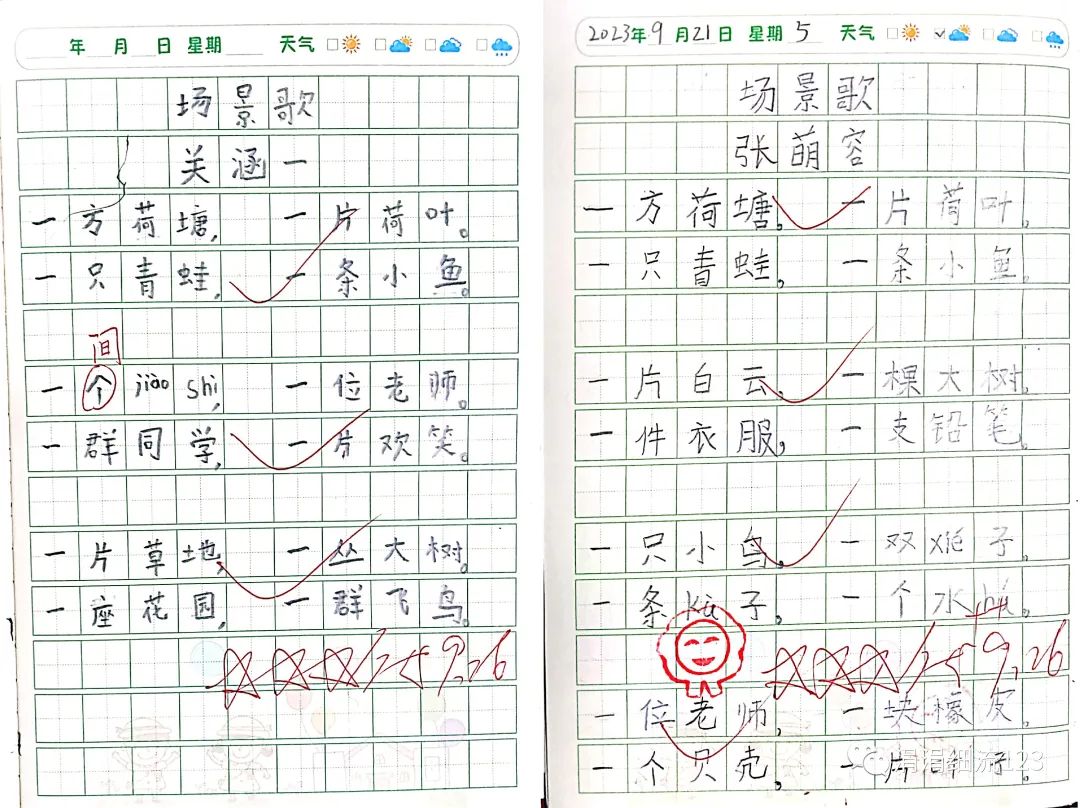 年 月 日 星期 天气
场景歌
关涵一
一方荷塘，一片荷叶。
一只青蛙，一条小鱼。
间
一个jiào shì，一位老师。
一群同学，一片欢笑。
一片草地，一丛大树。
一座花园，一群飞鸟。
9.26
2023年9月21日 星期5 天气
场景歌
张萌容
一方荷塘，一片荷叶。
一只青蛙，一条小鱼。
一片白云，一棵大树。
一件衣服，一支铅笔。
一只小鸟，一双xié子。
一条kù子，一个水
9.26
一位老师，一块橡皮。
一个贝壳，一片 子。
涓涓细流123